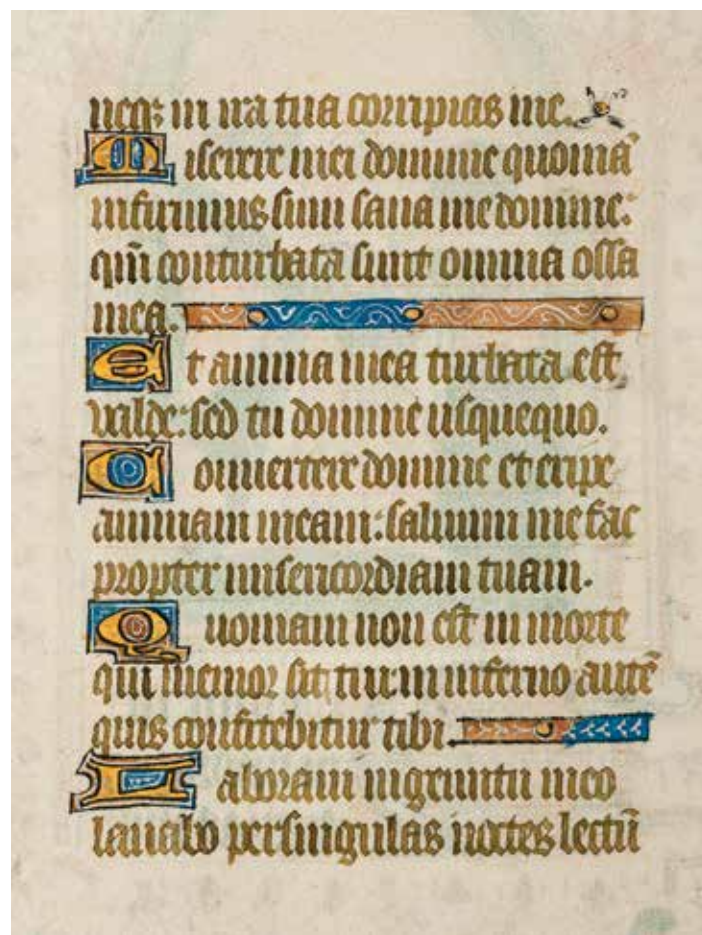 neq; in ira tua corripias me.
Miserere mei domine quoniā
infirmus sum sana me domine:
qm̄ conturbata sunt omnia ossa
mea.
Et anima mea turbata est
valde: sed tu domine usquequo.
Convertere domine et eripe
animam meam: salvum me fac
propter misericordiam tuam.
Quoniam non est in morte
qui memor sit tui: in inferno autē
quis confitebitur tibi.
Laboravi in gemitu meo
lavabo per singulas noctes lectū